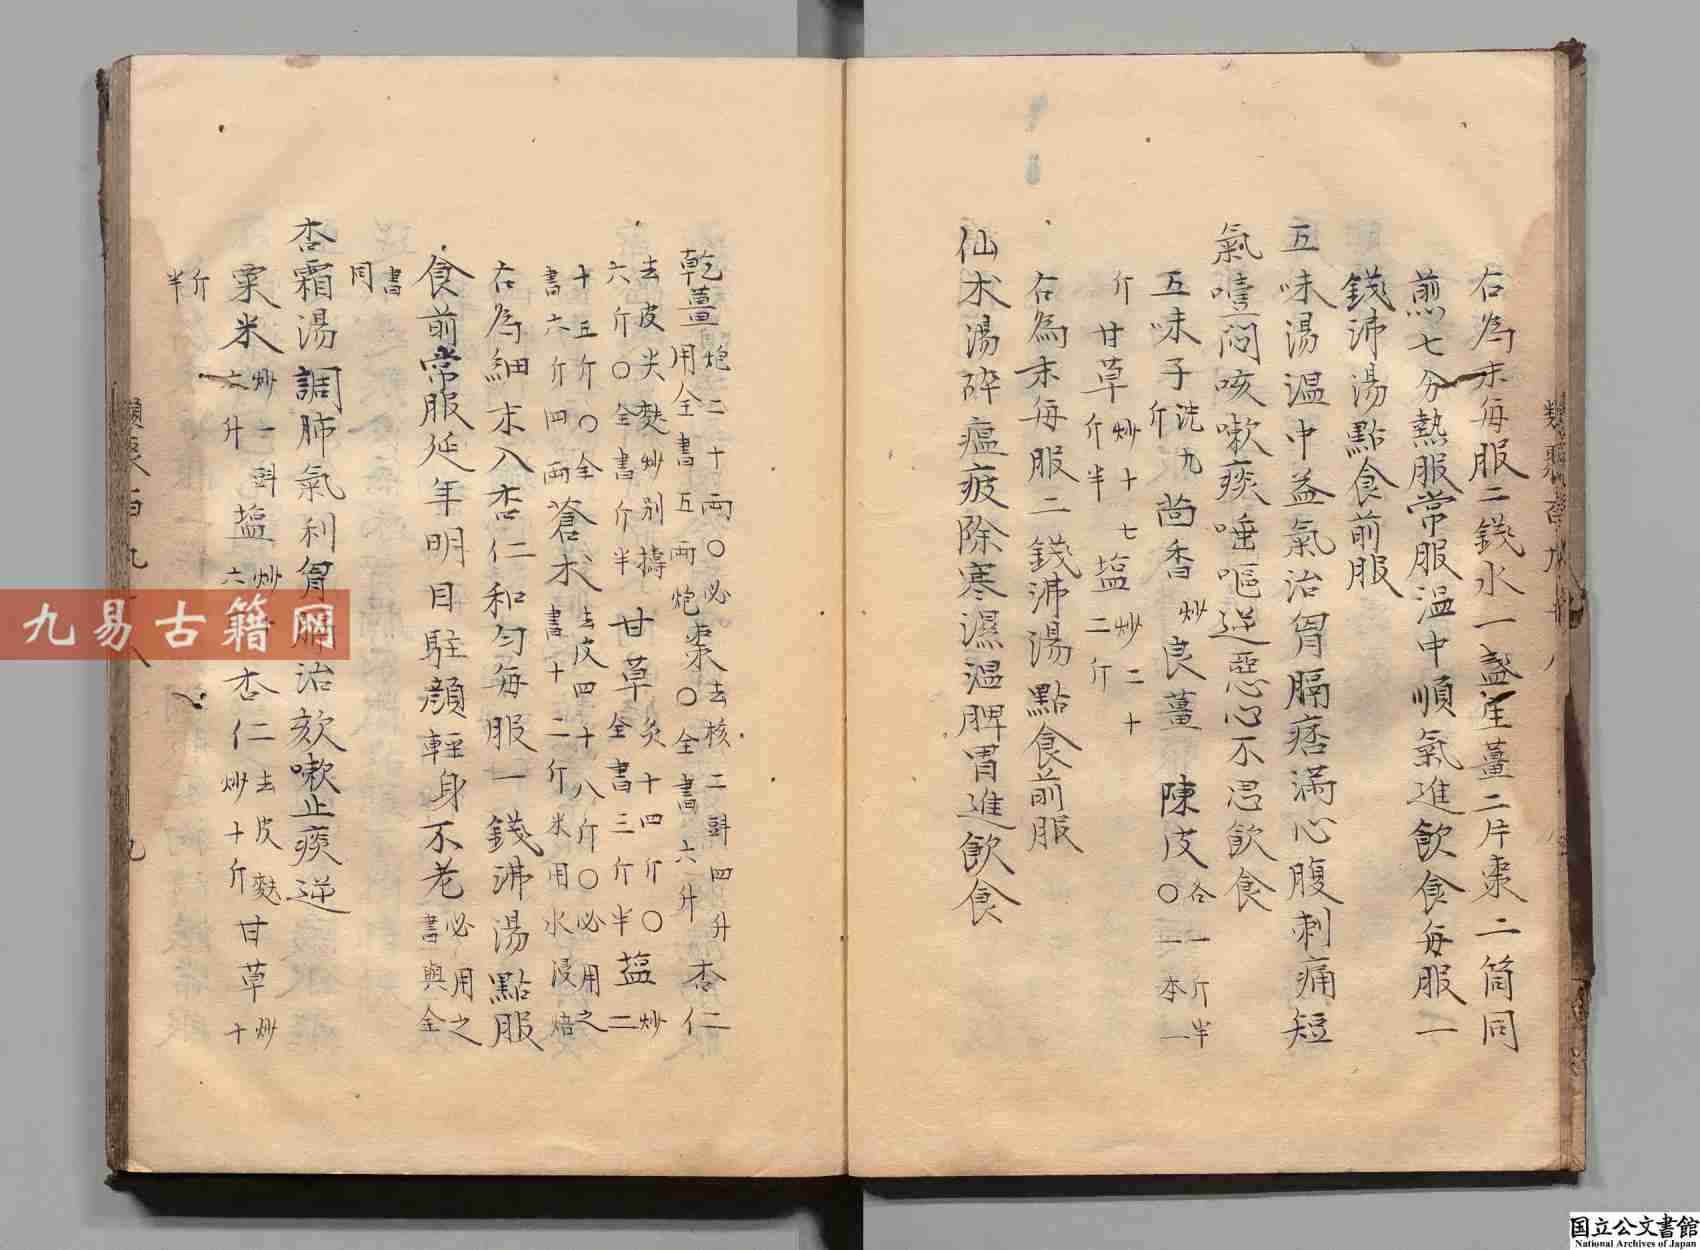 右為末每服二錢水一盞生薑二片棗二箇同
煎七分熱服常服温中順氣進飲食每服一
錢沸湯點食前服
五味湯温中益氣治胃膈痞滿心腹刺痛短
氣噎悶咳嗽痰唾嘔逆惡心不思飲食
五味子洗九斤茴香炒良薑 陳皮各一斤半〇一本一
斤甘草炒十七斤半塩炒二十二斤
右為末每服二錢沸湯點食前服
仙术湯碎瘟疫除寒濕温脾胃進飲食
乾薑炮二十兩〇必用全書五兩炮棗去核二斗四升〇全書六升杏仁
去皮尖麩炒别擣六斤〇全書斤半甘草炙十四斤〇全書三斤半塩炒二
十五斤〇全書六斤四兩蒼术去皮四十八斤〇必用之書十二斤米用水浸焙
右為細末入杏仁和勻每服一錢沸湯點服
食前常服延年明目駐顔輕身不老必用之書與全
書同
杏霜湯調肺氣利胷膈治欬嗽止痰逆
粟米炒一斗六升塩炒六 杏仁去皮麩炒十斤甘草炒十
斤半
九易古籍网
国立公文書館
National Archives of Japan